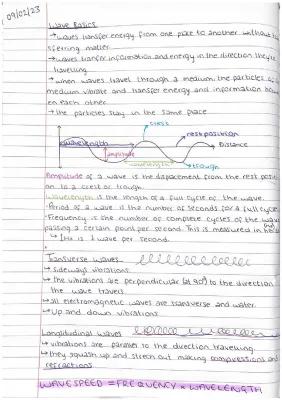 09/02/23
Wave Basics
→ waves transfer energy from one place to another without tran
sferring matter
→ waves tranfer information and energy in the direction they're
travelling
→ when waves travel through a medium, the particles of
medium vibrate and transfer energy and information be
en each other
→ the particles stay in the same place
crest
rest position
wavelength
Distance
amplitude
wavelength
trough
Amplitude of a wave is the dispacement from the rest positi
on to a crest or trough
Wavelength is the length of a full cycle of the wave.
Period of a wave is the number of seconds for a full cycle
Frequency is the number of complete cycles of the wave
passing a certain point per second. This is measured in
(Hz)
↳ 1Hz is 1 wave per second.
Transverse waves
↳ sideways vibrations
↳ the vibrations are perpendicular (at 90°) to the direction
the wave travels
↳ all electromagnetic waves are transverse and water
↳ up and down vibrations
Longitudinal waves
↳ vibrations are parallel to the direction travelling
↳ they squash up and strech out making compressions and
refractions
WAVE SPEED = FREQUENCY × WAVELENGTH